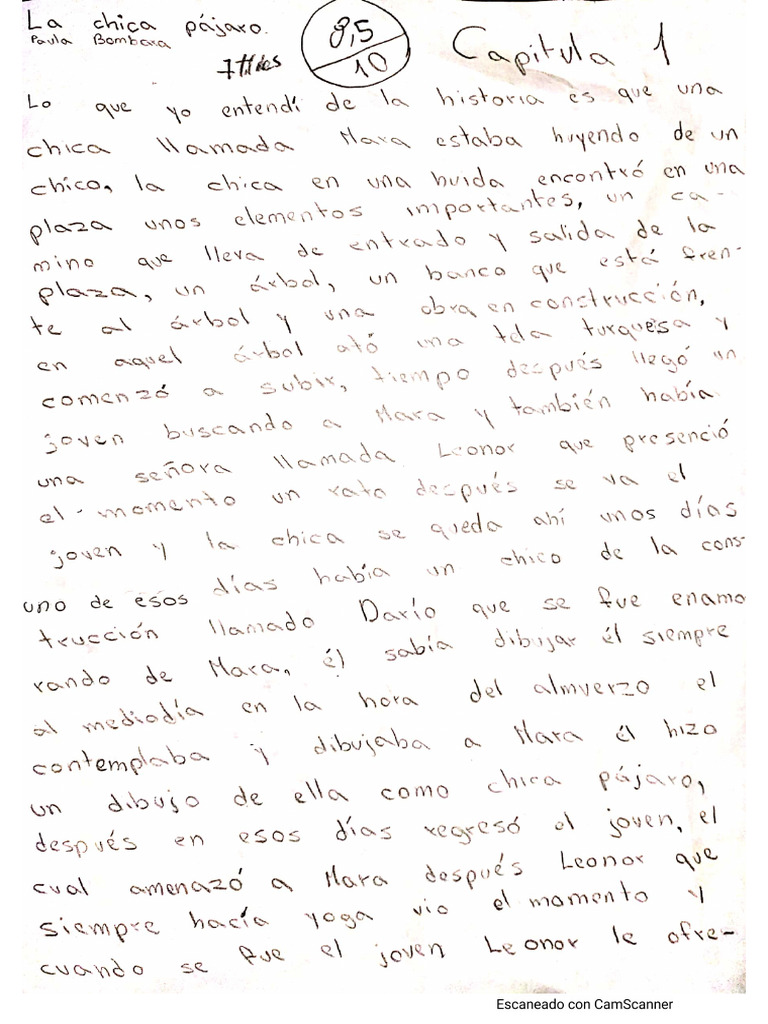 La chica pájaro.
Paula Bombara
8,5
10
Capitula 1
Lo que yo entendí de la historia es que una
chica llamada Mara estaba huyendo de un
chico, la chica en una huida encontró en una
plaza unos elementos importantes, un ca-
mino que lleva de entrado y salida de la
plaza, un árbol, un banco que está fren-
te al árbol y una obra en construcción,
en aquel árbol ató una tela turquesa y
comenzó a subir, tiempo después llegó un
joven buscando a Mara y también había
una señora llamada Leonor que presenció
el momento un rato después se va el
joven y la chica se queda ahí unos días
uno de esos días había un chico de la cons-
trucción llamado Darío que se fue enamo
rando de Mara, él sabía dibujar él siempre
al mediodía en la hora del almuerzo el
contemplaba y dibujaba a Mara él hizo
un dibujo de ella como chica pájaro,
después en esos días regresó el joven, el
cual amenazó a Mara después Leonor que
siempre hacía yoga vio el momento y
cuando se fue el joven Leonor le ofre-
Escaneado con CamScanner